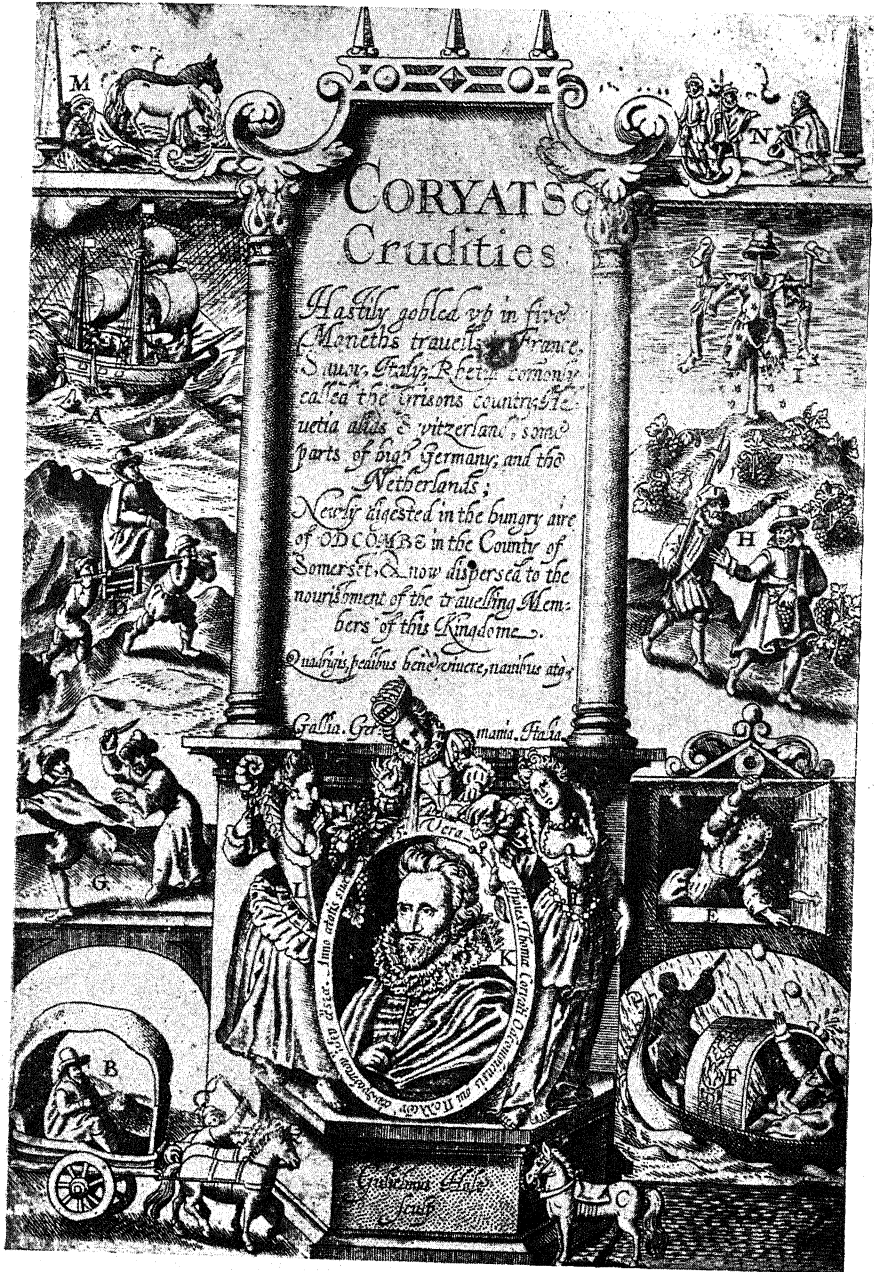 M
N
CORYATS
Crudities
Hastily gobled vp in five
Moneths trauells France,
Sauoy, Italy, Rhetia comonly
called the Grisons country, He-
uetia alias Switzerland, some
parts of high Germany, and the
Netherlands;
Newly digested in the hungry aire
of ODCOMBE in the County of
Somerset, & now dispersed to the
nourishment of the trauelling Mem-
bers of this Kingdome.
Quadrigis, pedibus bene viuere, nauibus atq,
Gallia. Ger mania. Italia
A
I
D
H
G
L
E
Vera
effigies Thomæ Coryati
Anno ætatis suæ
K
B
F
C
Gulielmus Hole
sculp